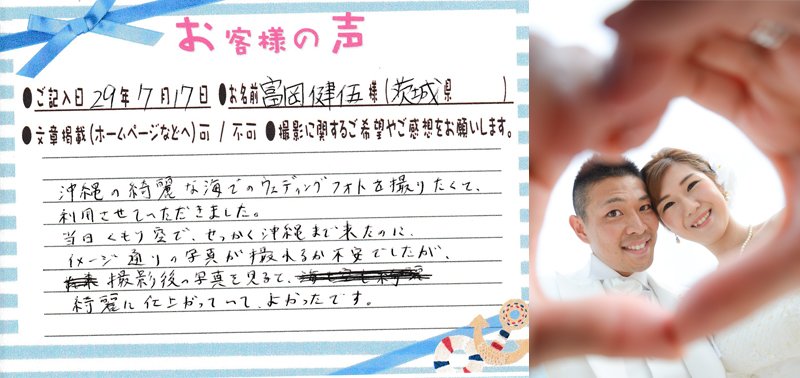 お客様の声
●ご記入日 29年7月17日 ●お名前 富岡健伍様(茨城県 )
●文章掲載(ホームページなどへ)可 / 不可 ●撮影に関するご希望やご感想をお願いします。
沖縄の綺麗な海でのウェディングフォトを撮りたくて、
利用させていただきました。
当日くもり空で、せっかく沖縄まで来たのに、
イメージ通りの写真が撮れるか不安でしたが、
撮影後の写真を見ると、
綺麗に仕上がっていて、よかったです。